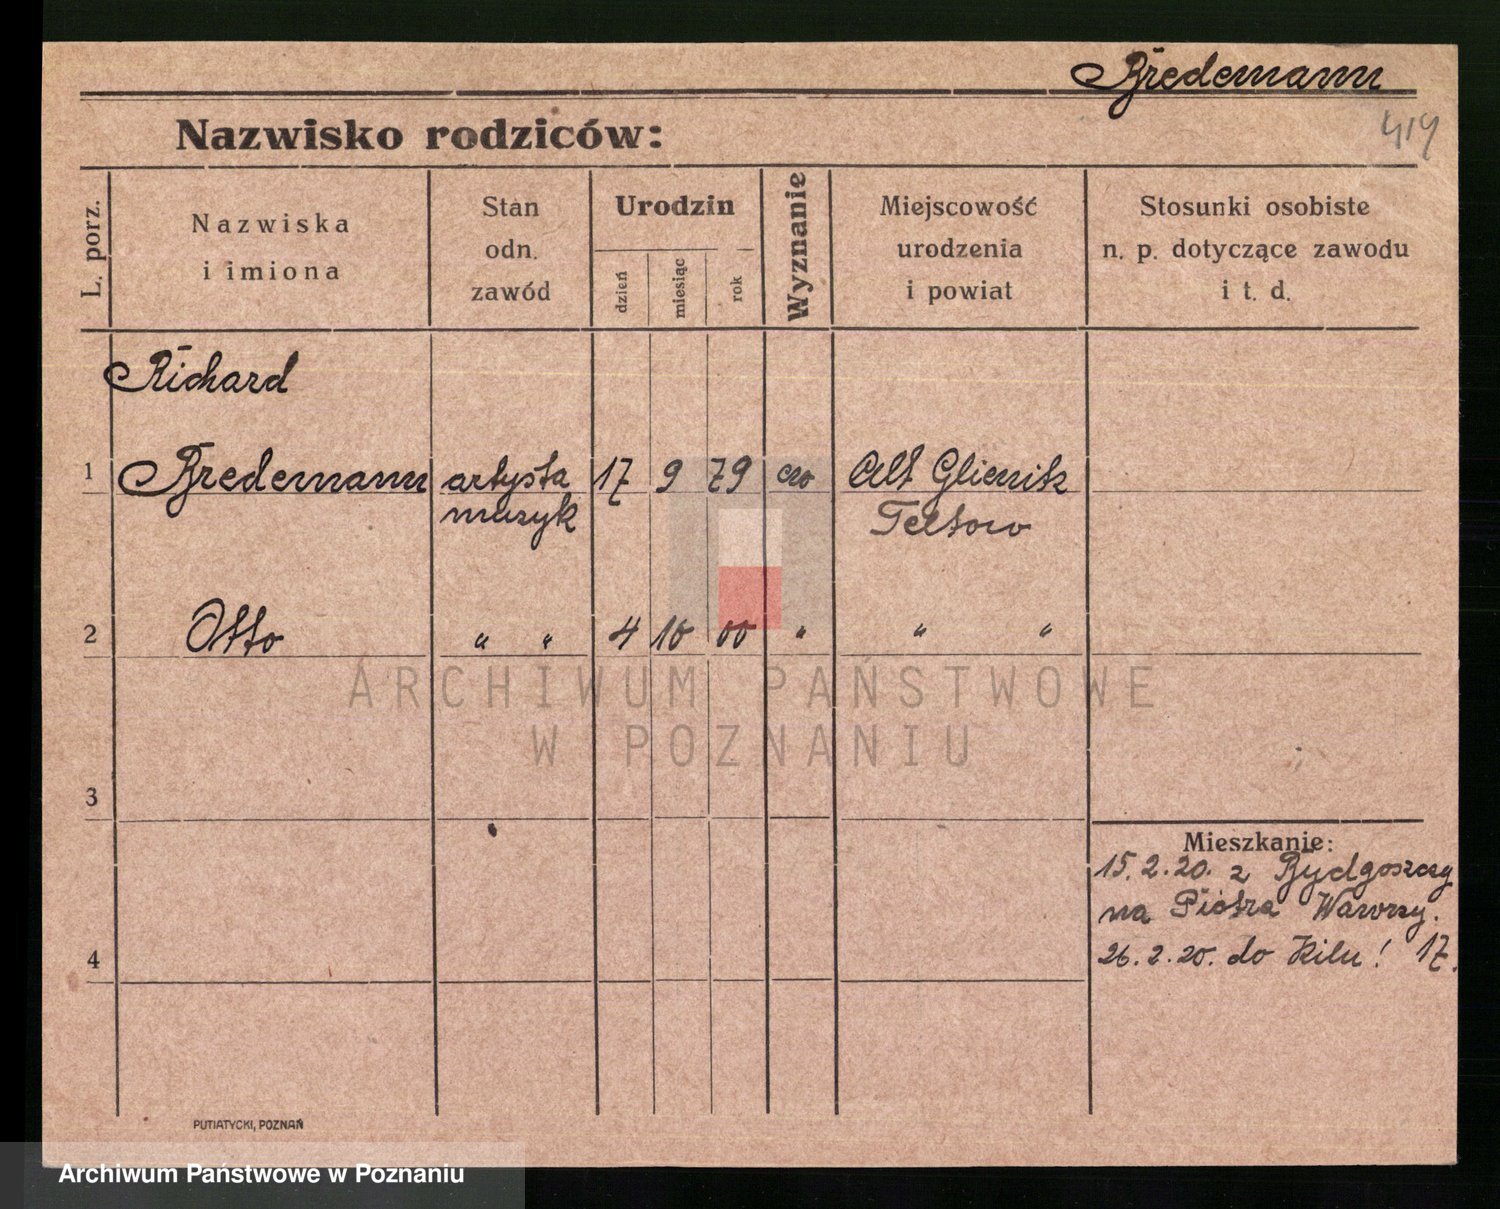 Bredemann
419
Nazwisko rodziców:
L. porz.
Nazwiska
i imiona
Stan
odn.
zawód
Urodzin
dzień
miesiąc
rok
Wyznanie
Miejscowość
urodzenia
i powiat
Stosunki osobiste
n. p. dotyczące zawodu
i t. d.
Richard
1 Bredemann artysta 17 9 79 Alt Glienitz
muzyk Teltow
2 Otto " " 4 10 00 " " "
ARCHIWUM PAŃSTWOWE
W POZNANIU
3
Mieszkanie:
15.2.20. z Bydgoszczy
na Piotra Wawrzy.
4
26.2.20. do Kilu! 17.
PUTIATYCKI, POZNAŃ
Archiwum Państwowe w Poznaniu